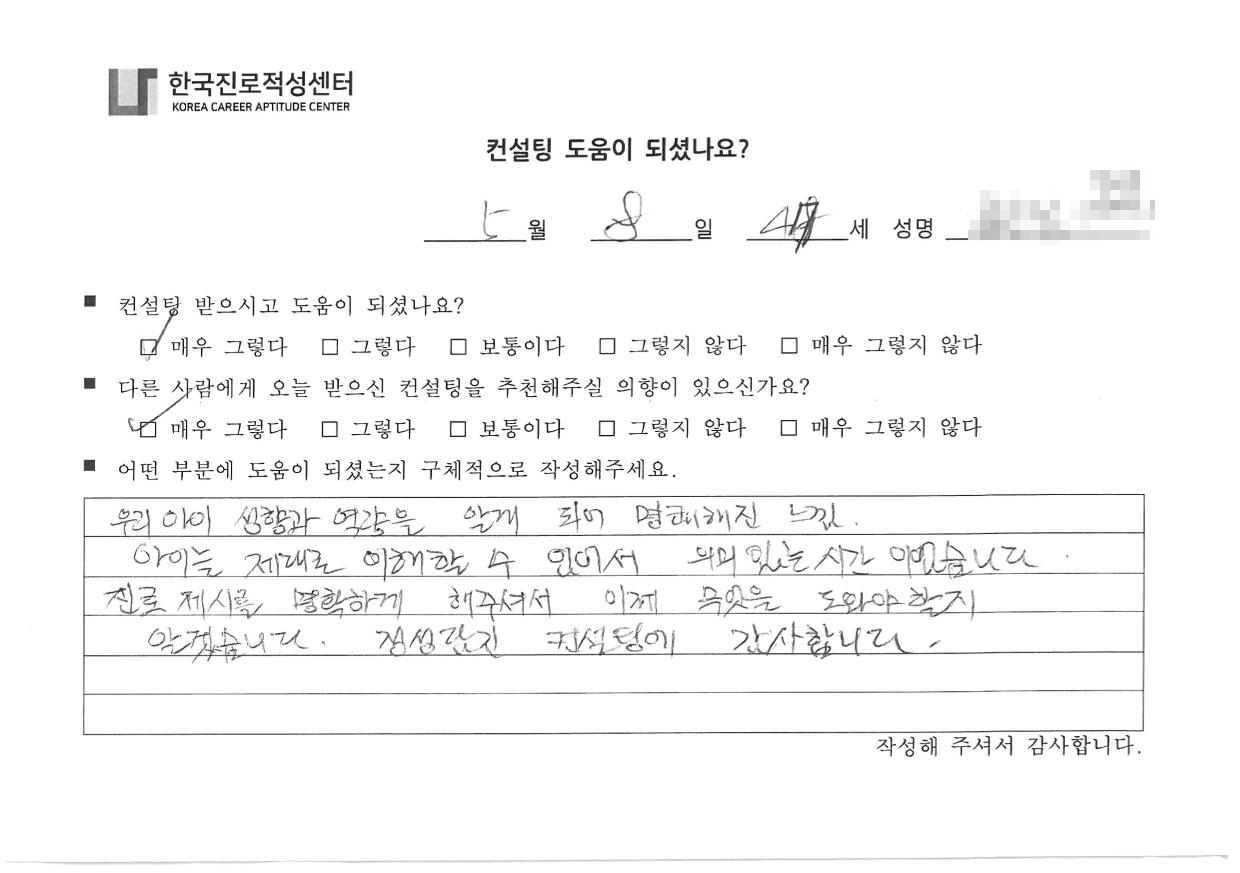 한국진로적성센터
KOREA CAREER APTITUDE CENTER
컨설팅 도움이 되셨나요?
5월 8일 47세 성명
■ 컨설팅 받으시고 도움이 되셨나요?
□ 매우 그렇다 □ 그렇다 □ 보통이다 □ 그렇지 않다 □ 매우 그렇지 않다
■ 다른 사람에게 오늘 받으신 컨설팅을 추천해주실 의향이 있으신가요?
□ 매우 그렇다 □ 그렇다 □ 보통이다 □ 그렇지 않다 □ 매우 그렇지 않다
■ 어떤 부분에 도움이 되셨는지 구체적으로 작성해주세요.
우리 아이 성향과 역량을 알게 되어 명쾌해진 느낌.
아이를 제대로 이해할 수 있어서 의미 있는 시간이었습니다.
진로 제시를 명확하게 해주셔서 이제 무엇을 도와야할지
알겠습니다. 정성담긴 컨설팅에 감사합니다.
작성해 주셔서 감사합니다.